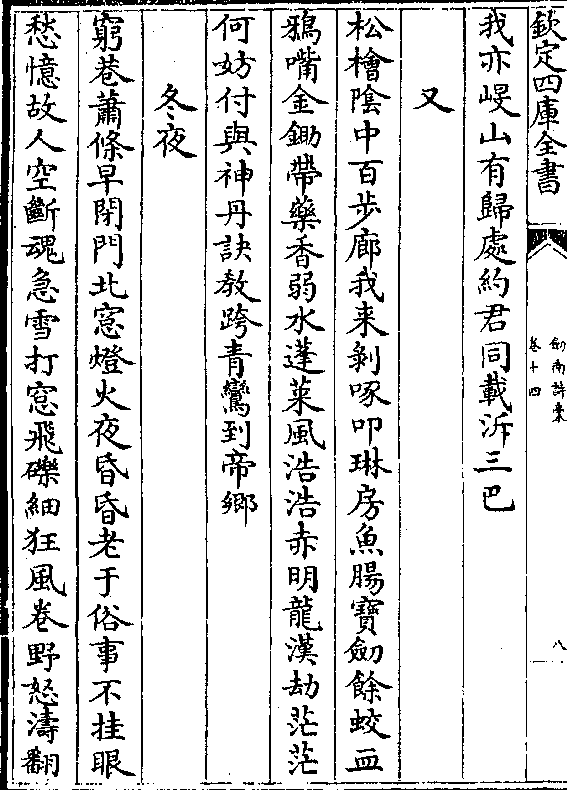 欽定四庫全書
劍南詩稾
卷十四
八
我亦㟭山有歸處約君同載泝三巴
又
松檜陰中百步廊我来剝啄叩琳房魚腸寳劒餘蛟血
鴉嘴金鋤帶藥香弱水蓬萊風浩浩赤明龍漢劫茫茫
何妨付與神丹訣教跨青鸞到帝鄉
冬夜
窮巷蕭條早閉門北窓燈火夜昏昏老于俗事不挂眼
愁憶故人空斷魂急雪打窓飛礫細狂風卷野怒濤翻